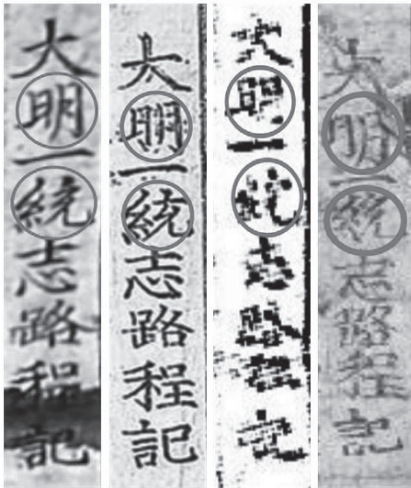 大明一統志路程記
大明一統志路程記
大明一統志路程記
大明一統志路程記